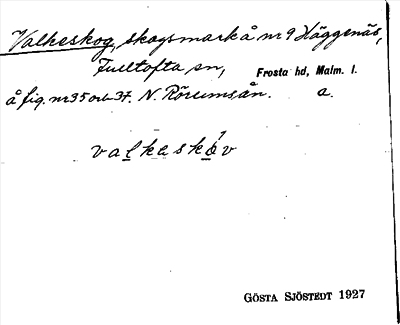 Valkeskog, skogsmark å nr 9 Häggenäs,
Fulltofta sn, Frosta hd, Malm. l.
å fig. nr 35 och 37. N. Rörums ån. a.
valkeskóv
GÖSTA SJÖSTEDT 1927